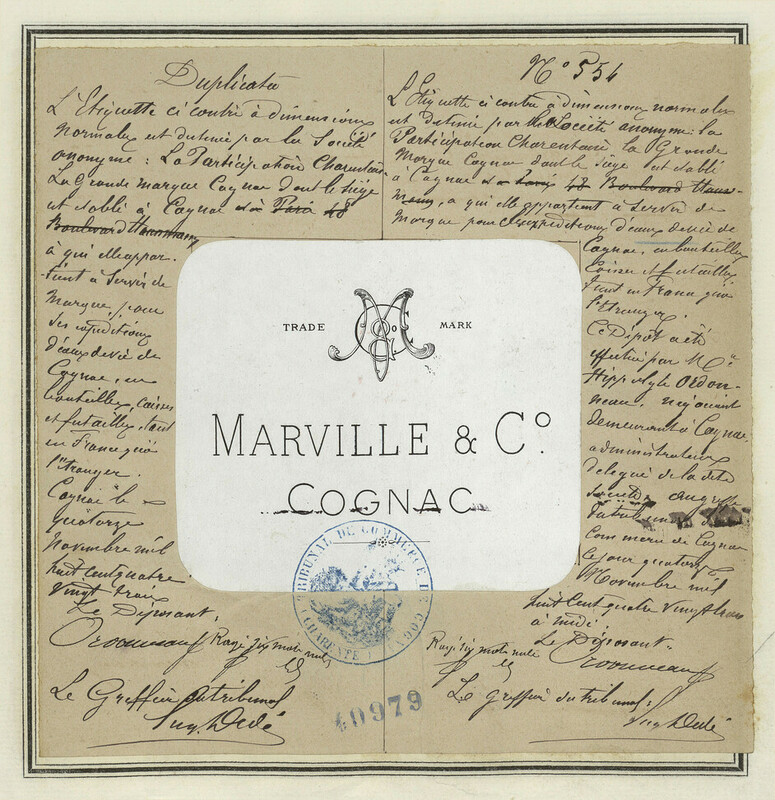 Duplicata
L'Etiquette ci contre à dimensions
normales est destinée par la Société
anonyme : La Participation Charentaise
La Grande marque Cognac dont le siège
est établi à Cognac et à Paris 48
Boulevard Haussmann
à qui elle appar-
tient à servir de
marque pour
ses expéditions
d'eaux de vie de
Cognac, en
bouteilles, caisses
et futailles, tant
en France qu'à
l'Etranger.
Cognac le
quatorze
Novembre mil
huit cent quatre
vingt trois
Le Déposant,
Ordonneau
Rayé six mots nuls
Le Greffier du tribunal
N° 554
L'Etiquette ci contre à dimensions normales
est destinée par la Société anonyme : la
Participation Charentaise la Grande
Marque Cognac dont le siège est établi
à Cognac et à Paris 48 Boulevard Hauss-
mann, a qui elle appartient à servir de
marque pour ses expéditions d'eaux de vie de
Cognac, en bouteilles
Caisses et futailles
tant en France qu'à
l'Etranger.
Ce Dépôt a été
effectué par Mr
Hippolyte Ordon-
neau, négociant
demeurant à Cognac,
administrateur
délégué de la dite
Société, au greffe
du tribunal de
Commerce de Cognac
le jour quatorze
Novembre mil
huit Cent quatre vingt trois
à midi.
Le Déposant.
Ordonneau
Rayé six mots nuls
Le greffier du tribunal
TRADE MARK
MARVILLE & C°.
COGNAC
TRIBUNAL DE COMMERCE DE COGNAC
(CHARENTE)
40979